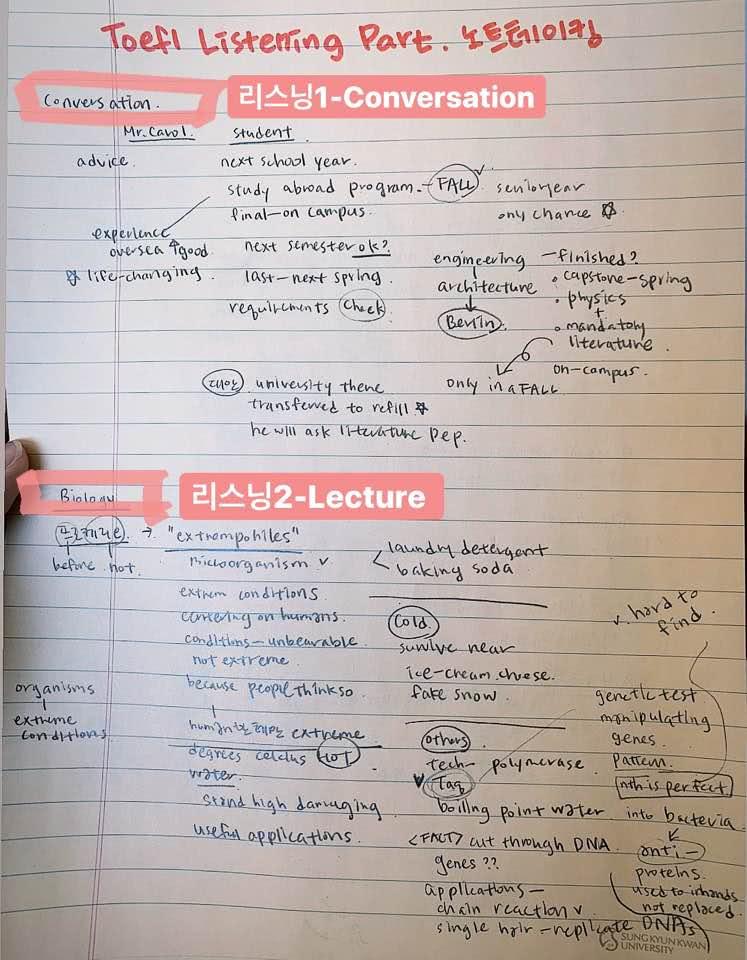 Toefl Listening Part. 노트테이킹
Conversation.
리스닝1-Conversation
Mr. Carol. student
advice. next school year.
study abroad program. - FALL senior year
final-on campus. only chance
experience
oversea good.
life-changing.
next semester ok?
last-next spring.
requirements check
engineering - finished?
architecture
Berlin.
capstone-spring
physics
+
mandatory
literature.
on-campus.
only in a FALL
대안 university there
transferred to refill
he will ask literature Dep.
Biology
리스닝2-Lecture
→ "extrempohiles"
before hot.
microorganism
extrem conditions.
centering on humans.
conditions-unbearable
not extreme.
because people think so.
organisms
extreme
conditions.
human한테만 extreme
degrees celcius HOT
water.
stand high damaging
useful applications.
laundry detergent
baking soda.
Cold
survive near
ice-cream. cheese.
fake snow.
Others
tech- polymerase.
Taq
boiling point water.
<FACT> cut through DNA.
genes??
applications-
chain reaction
single hair - replicate DNAs
hard to
find.
genetic test
manipulating
genes.
pattern.
nth is perfect
into bacteria
anti-
proteins.
used to
not replaced.
SUNG KYUN KWAN
UNIVERSITY